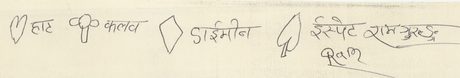 हाट कलव डाईमीन ईस्पेट राम गुरुङ
Ram